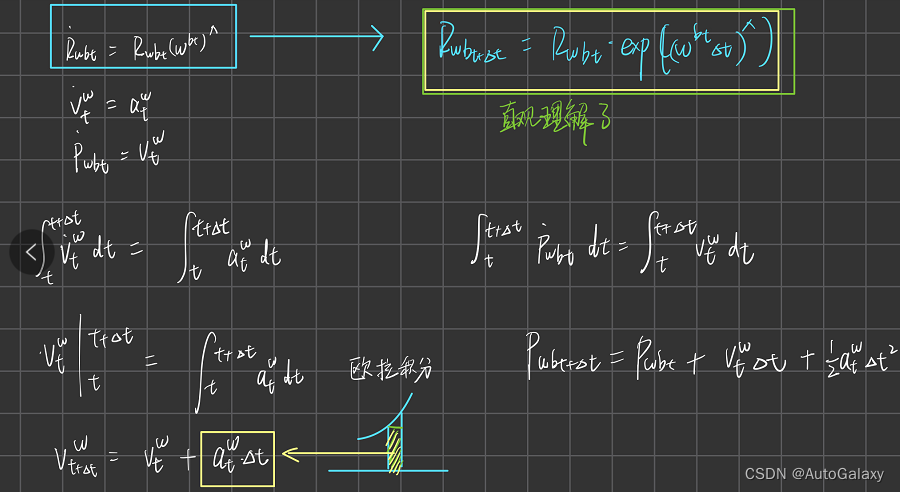 Ṙ_{wbt} = R_{wbt}(ω^{bt})^∧ → R_{wbt+Δt} = R_{wbt} · exp((ω^{bt}Δt)^∧)
直观理解了
v̇_t^w = a_t^w
ṗ_{wbt} = v_t^w
∫_t^{t+Δt} v̇_t^w dt = ∫_t^{t+Δt} a_t^w dt
∫_t^{t+Δt} ṗ_{wbt} dt = ∫_t^{t+Δt} v_t^w dt
v_t^w |_t^{t+Δt} = ∫_t^{t+Δt} a_t^w dt
欧拉积分
p_{wbt+Δt} = p_{wbt} + v_t^w Δt + ½ a_t^w Δt²
v_{t+Δt}^w = v_t^w + a_t^w · Δt
CSDN @AutoGalaxy